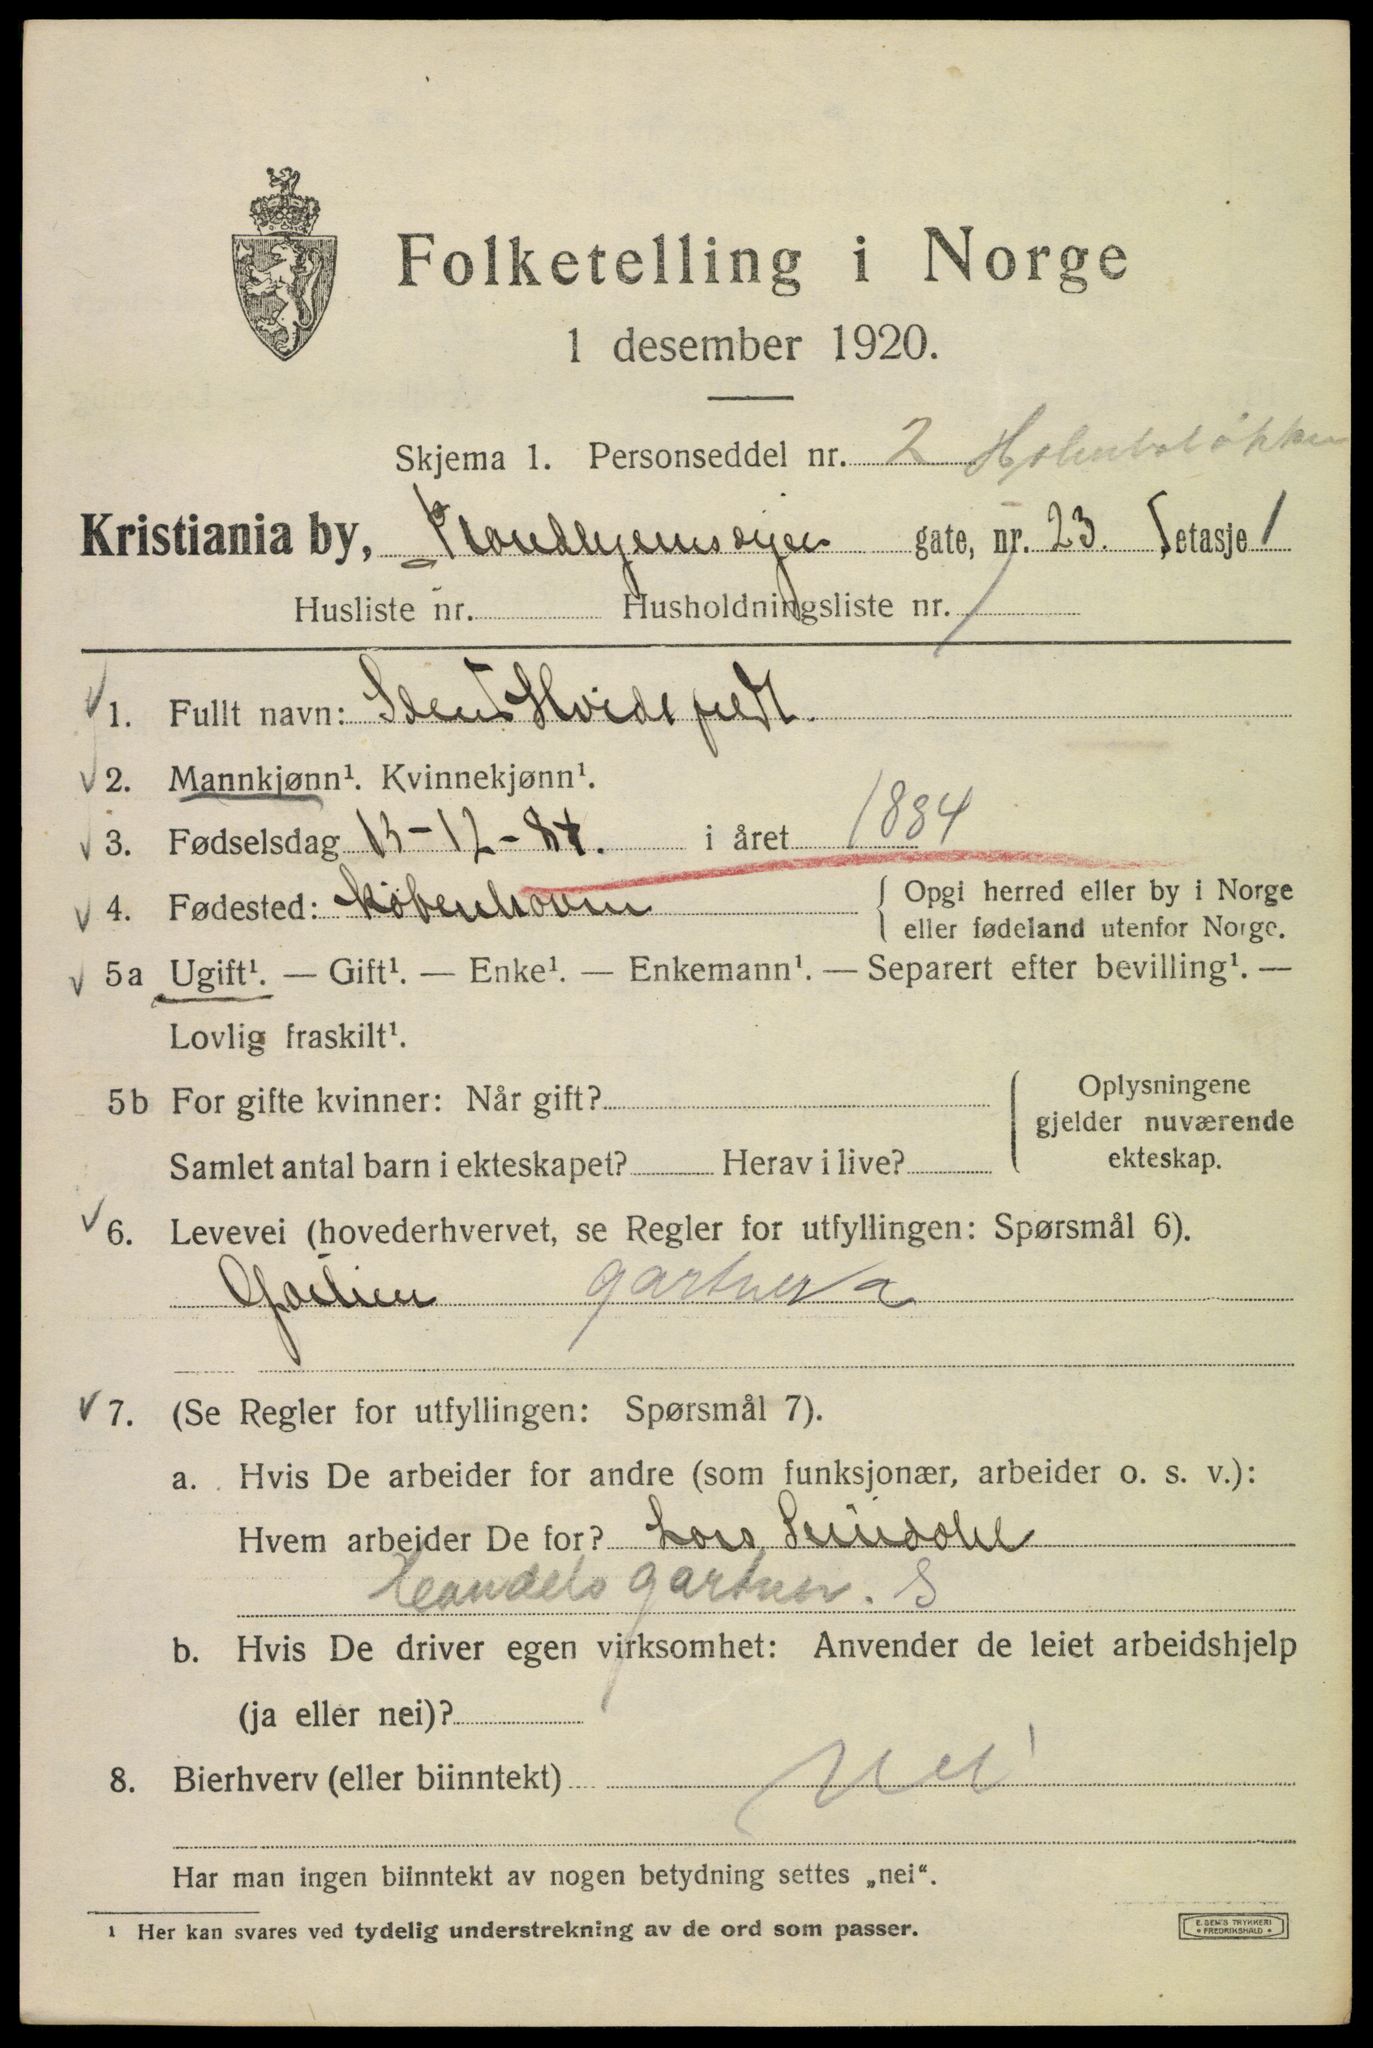 Folketelling i Norge
1 desember 1920.
Skjema 1. Personseddel nr. 2
Kristiania by, Trondhjemsveien gate, nr. 23. etasje 1
Husliste nr. Husholdningsliste nr. 1
1. Fullt navn: Hvidtfeldt.
2. Mannkjønn¹. Kvinnekjønn¹.
3. Fødselsdag 13-12-84. i året 1884
4. Fødested: København { Opgi herred eller by i Norge
eller fødeland utenfor Norge.
5a Ugift¹. — Gift¹. — Enke¹. — Enkemann¹. — Separert efter bevilling¹. —
Lovlig fraskilt¹.
5b For gifte kvinner: Når gift? { Oplysningene
gjelder nuværende
Samlet antal barn i ekteskapet? Herav i live? ekteskap.
6. Levevei (hovederhvervet, se Regler for utfyllingen: Spørsmål 6).
gartner a
7. (Se Regler for utfyllingen: Spørsmål 7).
a. Hvis De arbeider for andre (som funksjonær, arbeider o. s. v.):
Hvem arbeider De for? Lars
Handelsgartner. S
b. Hvis De driver egen virksomhet: Anvender de leiet arbeidshjelp
(ja eller nei)?
8. Bierhverv (eller biinntekt) Nei
Har man ingen biinntekt av nogen betydning settes „nei“.
¹ Her kan svares ved tydelig understrekning av de ord som passer.
E. SEM'S TRYKKERI
• FREDRIKSHALD •